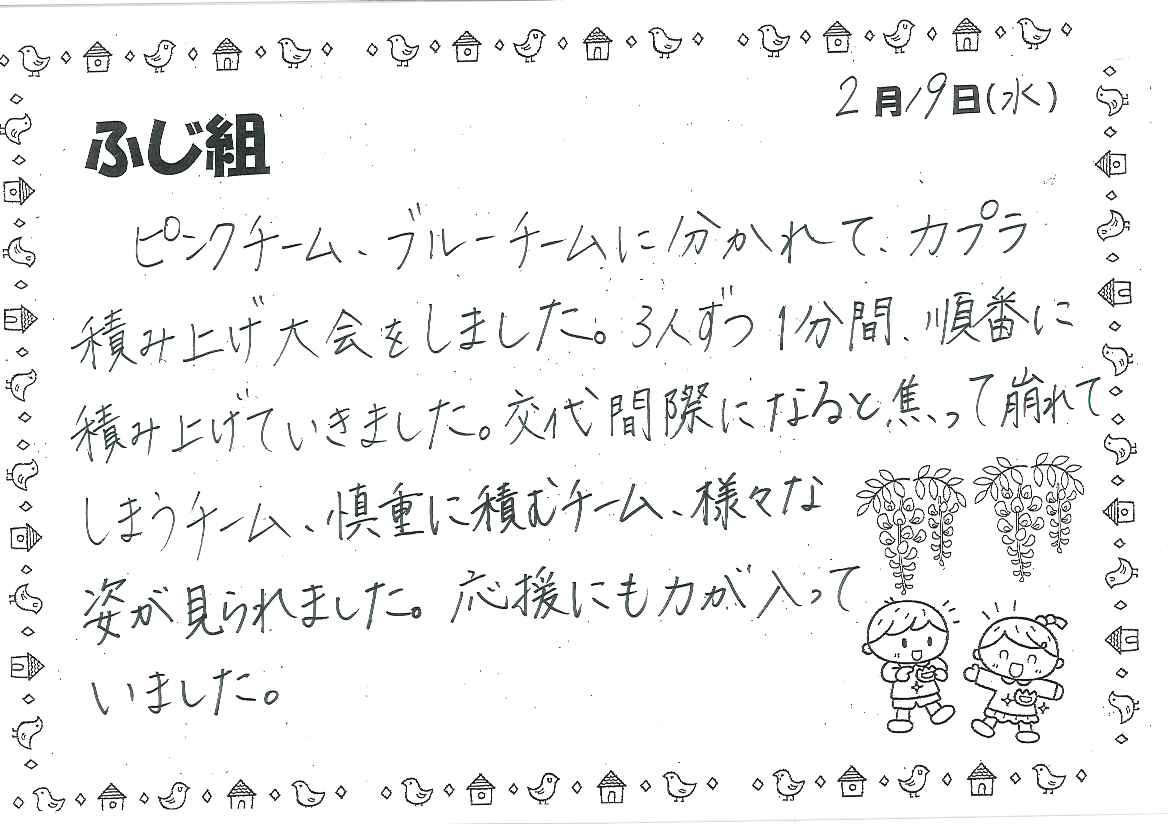 2月19日(水)
ふじ組
ピンクチーム、ブルーチームに分かれて、カプラ
積み上げ大会をしました。3人ずつ1分間、順番に
積み上げていきました。交代間際になると焦って崩れて
しまうチーム、慎重に積むチーム、様々な
姿が見られました。応援にも力が入って
いました。